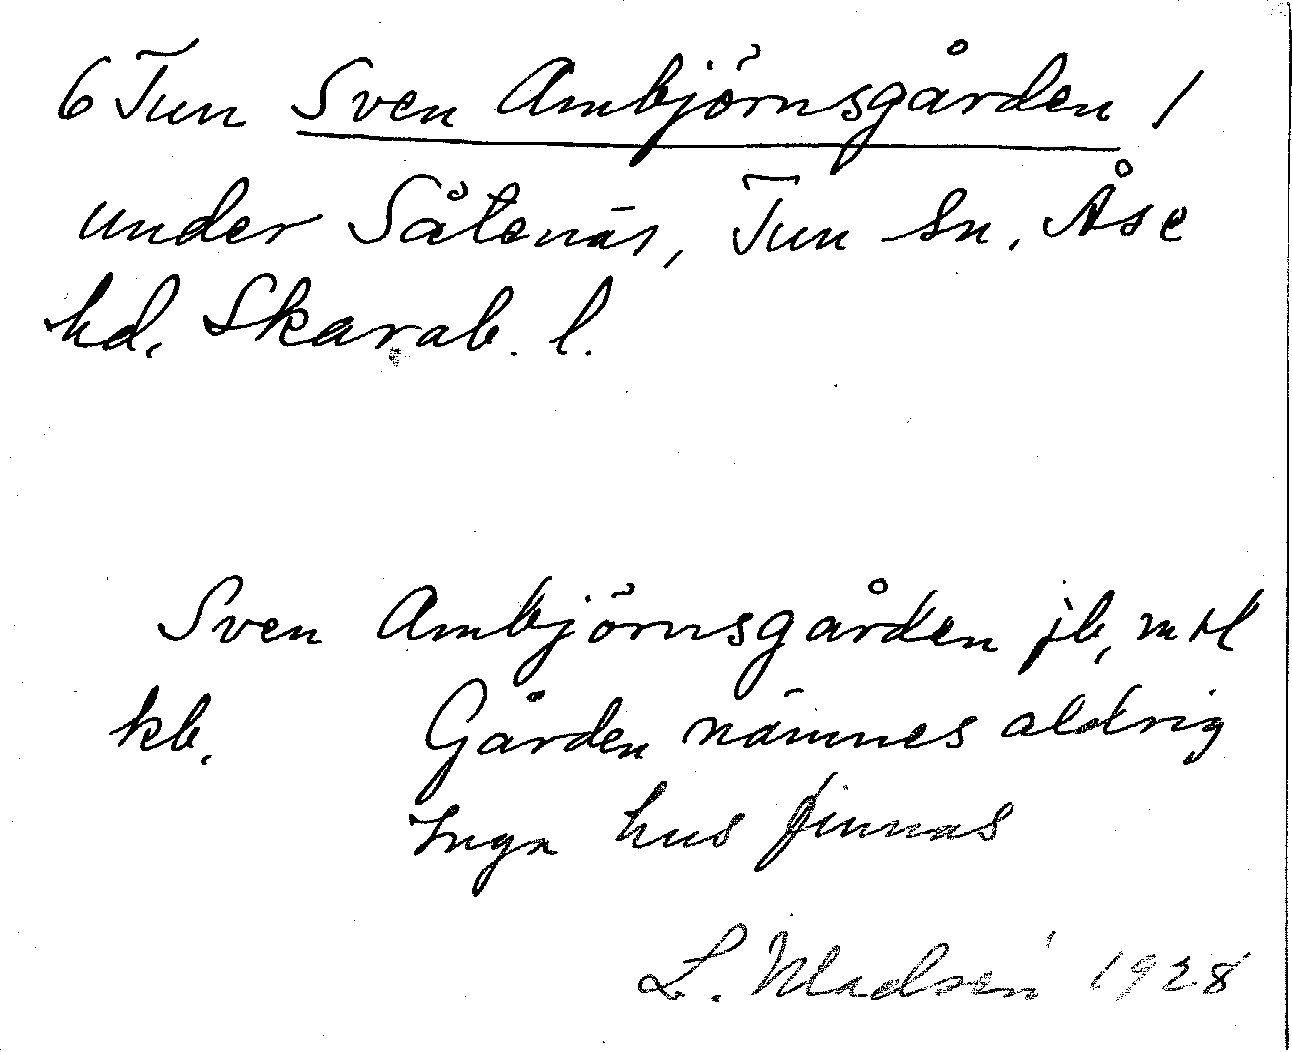 6 Tun Sven Ambjörnsgården /
under Såtenäs, Tun sn. Åse
hd. Skarab. l.
Sven Ambjörnsgården jb, mtl
kb. Gården nämnes aldrig
Inga hus finnas
L. Madsén 1928